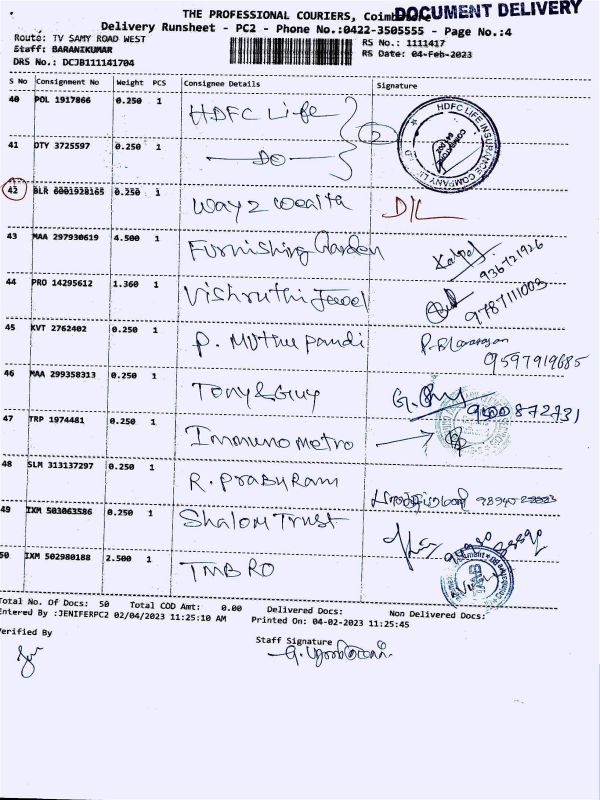 THE PROFESSIONAL COURIERS, Coimbatore
DOCUMENT DELIVERY
Delivery Runsheet - PC2 - Phone No.:0422-3505555 - Page No.:4
Route: TV SAMY ROAD WEST
RS No.: 1111417
Staff: BARANIKUMAR
RS Date: 04-Feb-2023
DRS No.: DCJB111141704
S No Consignment No Weight PCS Consignee Details Signature
40 POL 1917866 0.250 1 HDFC Life
2
HDFC LIFE INSURANCE COMPANY
41 DTY 3725597 0.250 1 Do
42 BLR 6001928165 0.250 1 Way 2 Wealth D/L
43 MAA 297930619 4.500 1 Furnishing Garden
936721926
44 PRO 14295612 1.360 1 Vishruthi Jewel
9787111003
45 KVT 2762402 0.250 1 P. Muthu pandi
9597919685
46 MAA 299358313 0.250 1 Tony & Guy
47 TRP 1974481 0.250 1 Immuno Metro
48 SLM 313137297 0.250 1 R. Prabu Ram
49 IXM 503063586 0.250 1 Shalom Trust
50 IXM 502980188 2.500 1 TMB RO
Total No. Of Docs: 50 Total COD Amt: 0.00 Delivered Docs: Non Delivered Docs:
Entered By :JENIFERPC2 02/04/2023 11:25:10 AM Printed On: 04-02-2023 11:25:45
Verified By
Staff Signature